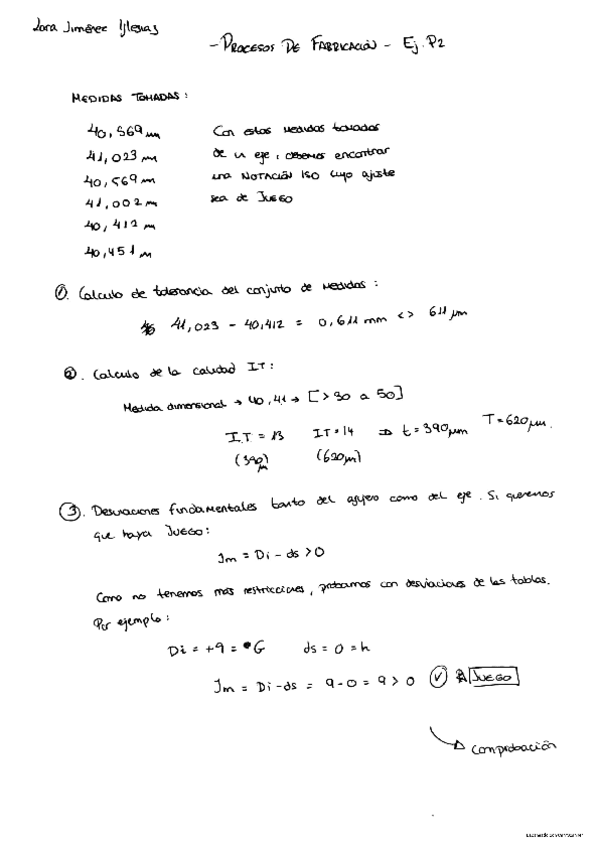 Lara Jiménez Iglesias
- PROCESOS DE FABRICACIÓN - Ej. P2
MEDIDAS TOMADAS:
40,569 mm
41,023 mm
40,569 mm
41,002 mm
40,412 mm
40,451 m
Con estas medidas tomadas
de un eje, debemos encontrar
una NOTACIÓN ISO cuyo ajuste
sea de JUEGO
①. Calculo de tolerancia del conjunto de medidas:
41,023 - 40,412 = 0,611 mm <> 611 µm
②. Calculo de la calidad IT:
Medida dimensional → 40,41 → [>30 a 50]
IT = 13 IT = 14 ⇒ t = 390µm T = 620µm.
(390µm) (620µm)
③. Desviaciones fundamentales tanto del agujero como del eje. Si queremos
que haya JUEGO:
Jm = Di - ds > 0
Como no tenemos más restricciones, probamos con desviaciones de las tablas.
Por ejemplo:
Di = +9 = G ds = 0 = h
Jm = Di - ds = 9 - 0 = 9 > 0 ✓ JUEGO
Comprobación